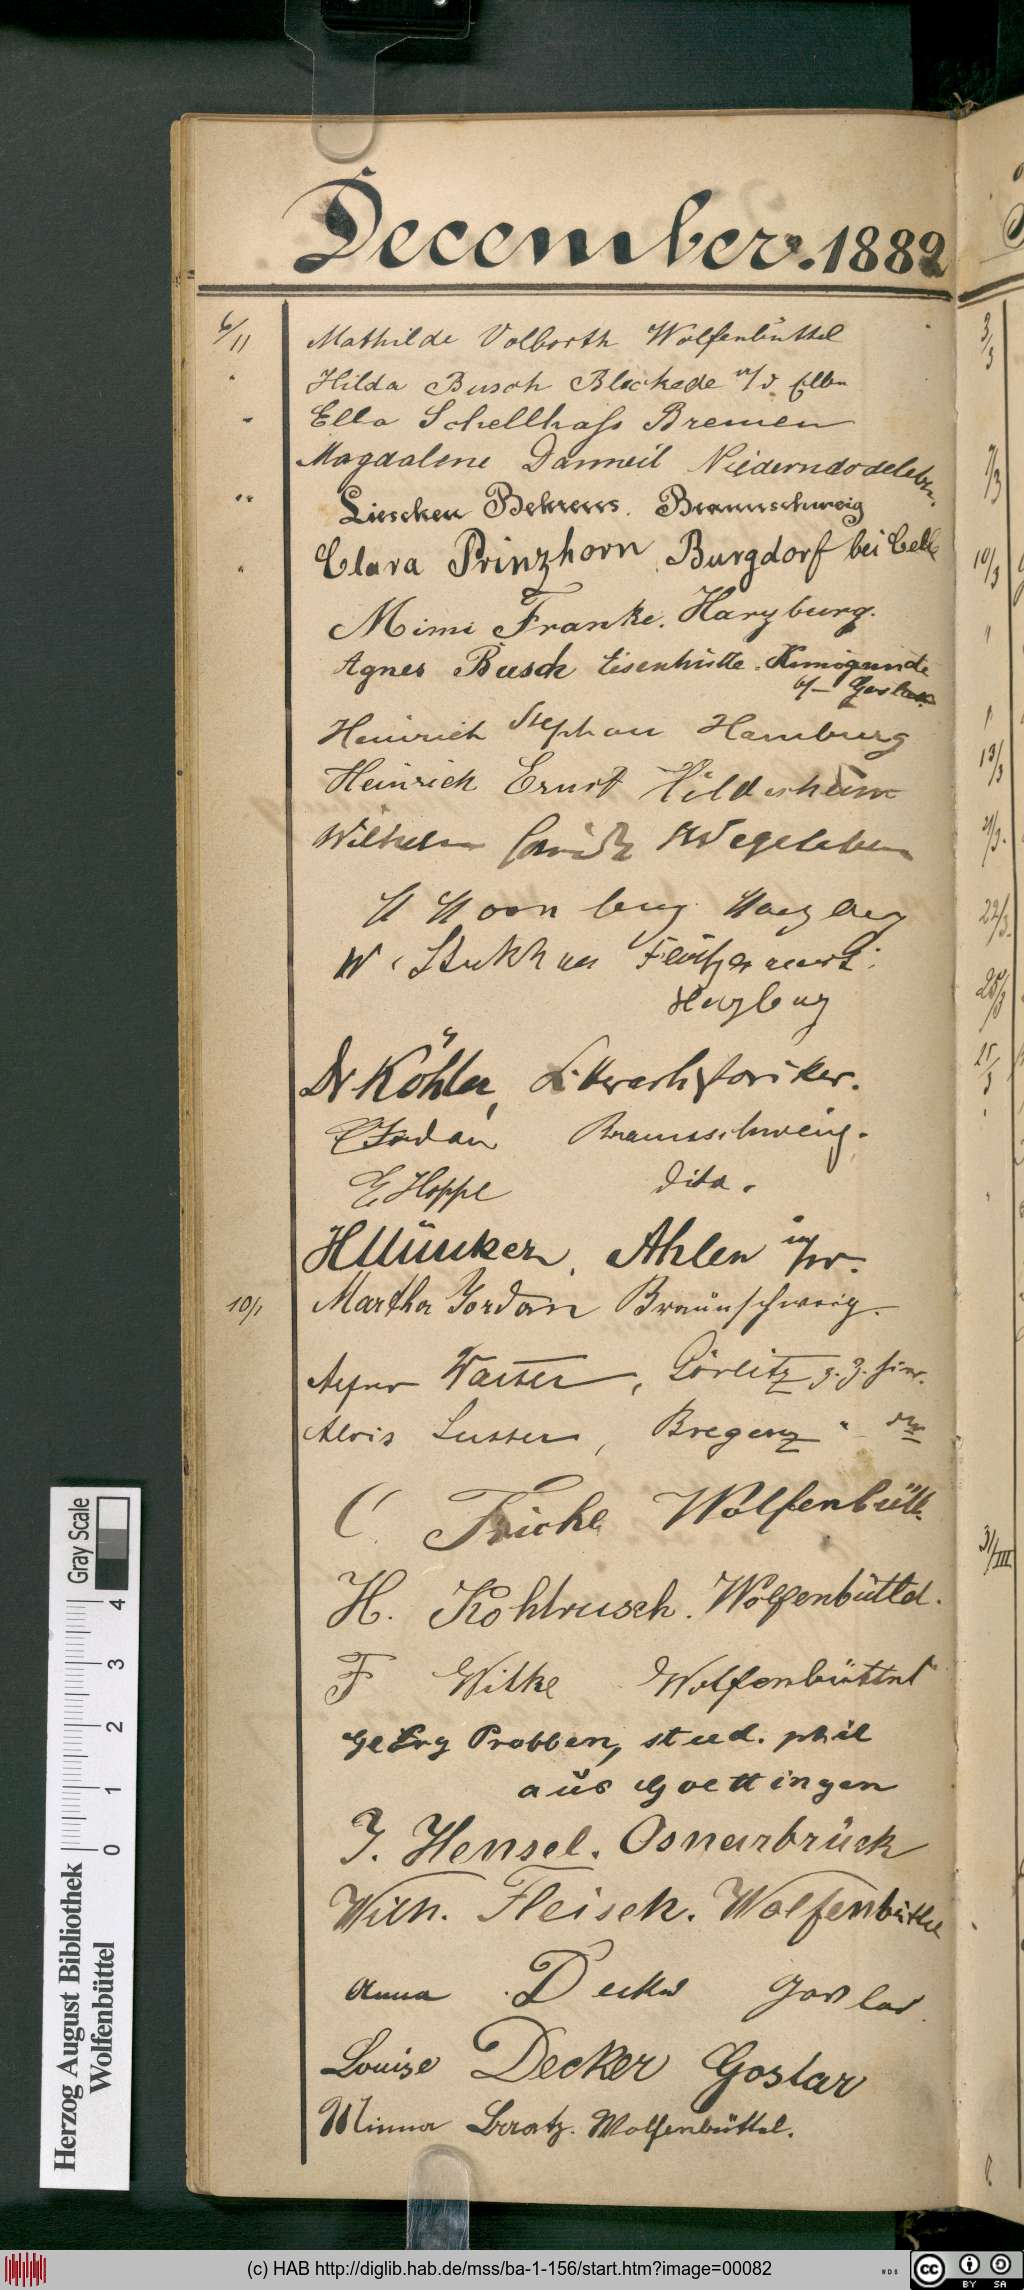 December. 1882
6/11 Mathilde Volborth Wolfenbüttel
" Hilda Busch Bleckede a/d. Elbe
" Ella Schellhass Bremen
Magdalene Danneil Niederndodeleben
" Lieschen Behrens. Braunschweig
" Clara Prinzhorn Burgdorf bei Celle
Mimi Franke. Harzburg.
Agnes Busch Eisenhütte. Kunigunde
b/– Goslar
Heinrich Stephan Hamburg
Heinrich Ernst Hildesheim
Wilhelm Wegeleben
W.
Harzburg
Dr Köhler, Literarhistoriker.
Jordan Braunschweig.
E Hoppe dito.
H Münker, Ahlen i/W.
10/1 Martha Jordan Braunschweig.
Görlitz z. Z. hier.
Alois Susser, Bregenz "
C Fricke Wolfenbütt.
H. Kohlrusch. Wolfenbüttel.
F Witke Wolfenbüttel
Georg Probben, stud. phil
aus Goettingen
J. Hensel. Osnarbrück
Wilh. Fleisch. Wolfenbüttel
Anna Decker Goslar
Louise Decker Goslar
Minna Wolfenbüttel.
3/3
7/3
10/3
"
"
13/3
21/3.
22/3.
25/3
25/3
31/III
Gray Scale
0 1 2 3 4
Herzog August Bibliothek
Wolfenbüttel
(c) HAB http://diglib.hab.de/mss/ba-1-156/start.htm?image=00082
WDB
cc BY SA